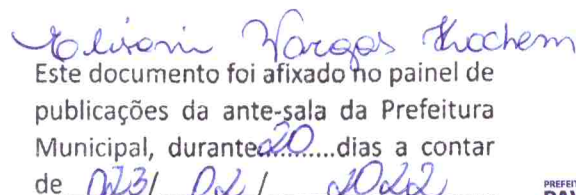 Elivani Vargas Kochem
Este documento foi afixado no painel de
publicações da ante-sala da Prefeitura
Municipal, durante 20 dias a contar
de 023/ 02 / 2022
PREFEIT